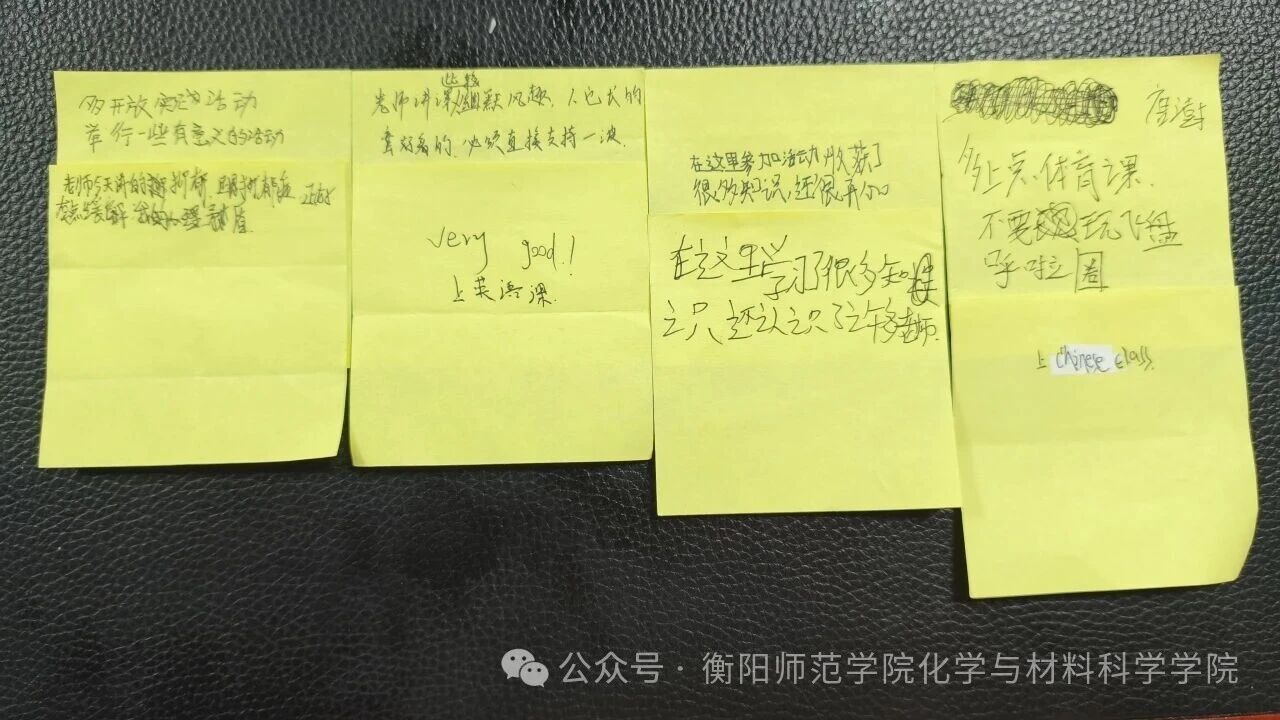 多开放实践活动
举行一些有意义的活动
老师今天讲的
些许
老师讲课幽默风趣，人也长的
蛮好看的，必须直接支持一波.
very good!
上英语课.
在这里参加活动收获了
很多知识,还很开心
在这里学习了很多知
识还认识了许多老师.
多上点体育课.
不要玩飞盘
呼啦圈
上 Chinese class.
公众号·衡阳师范学院化学与材料科学学院